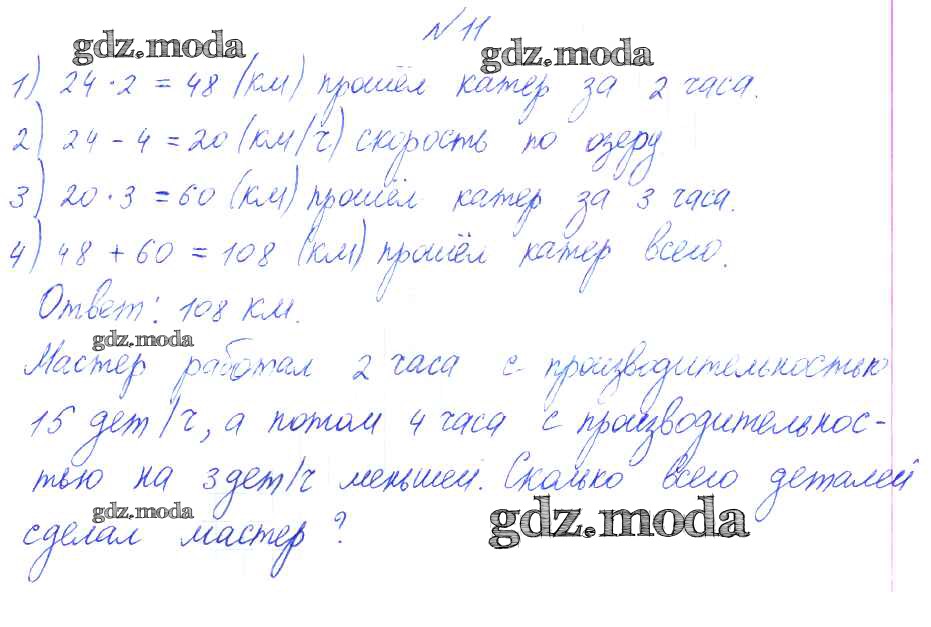 № 11
gdz.moda gdz.moda
1) 24 · 2 = 48 (км) прошёл катер за 2 часа.
2) 24 - 4 = 20 (км/ч) скорость по озеру
3) 20 · 3 = 60 (км) прошёл катер за 3 часа.
4) 48 + 60 = 108 (км) прошёл катер всего.
Ответ: 108 км.
gdz.moda
Мастер работал 2 часа с производительностью
15 дет/ч, а потом 4 часа с производительнос-
тью на 3 дет/ч меньшей. Сколько всего деталей
gdz.moda gdz.moda
сделал мастер?